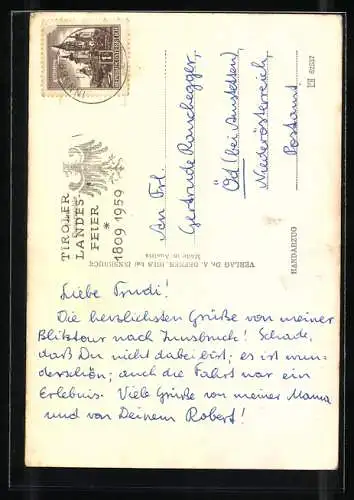 TIROLER
LANDES
FEIER
*
1809 1959
An Frl.
Gertrude Rauschegger,
Öd (bei Amstetten)
Niederösterreich,
Postamt
VERLAG Dr. A. DEFNER, IGLS bei INNSBRUCK
Made in Austria
HANDABZUG
Liebe Trudi!
Die herzlichsten Grüße von meiner
Blitztour nach Innsbruck! Schade,
daß Du nicht dabei bist; es ist wun-
derschön; auch die Fahrt war ein
Erlebnis. Viele Grüße von meiner Mama
und von Deinem Robert!